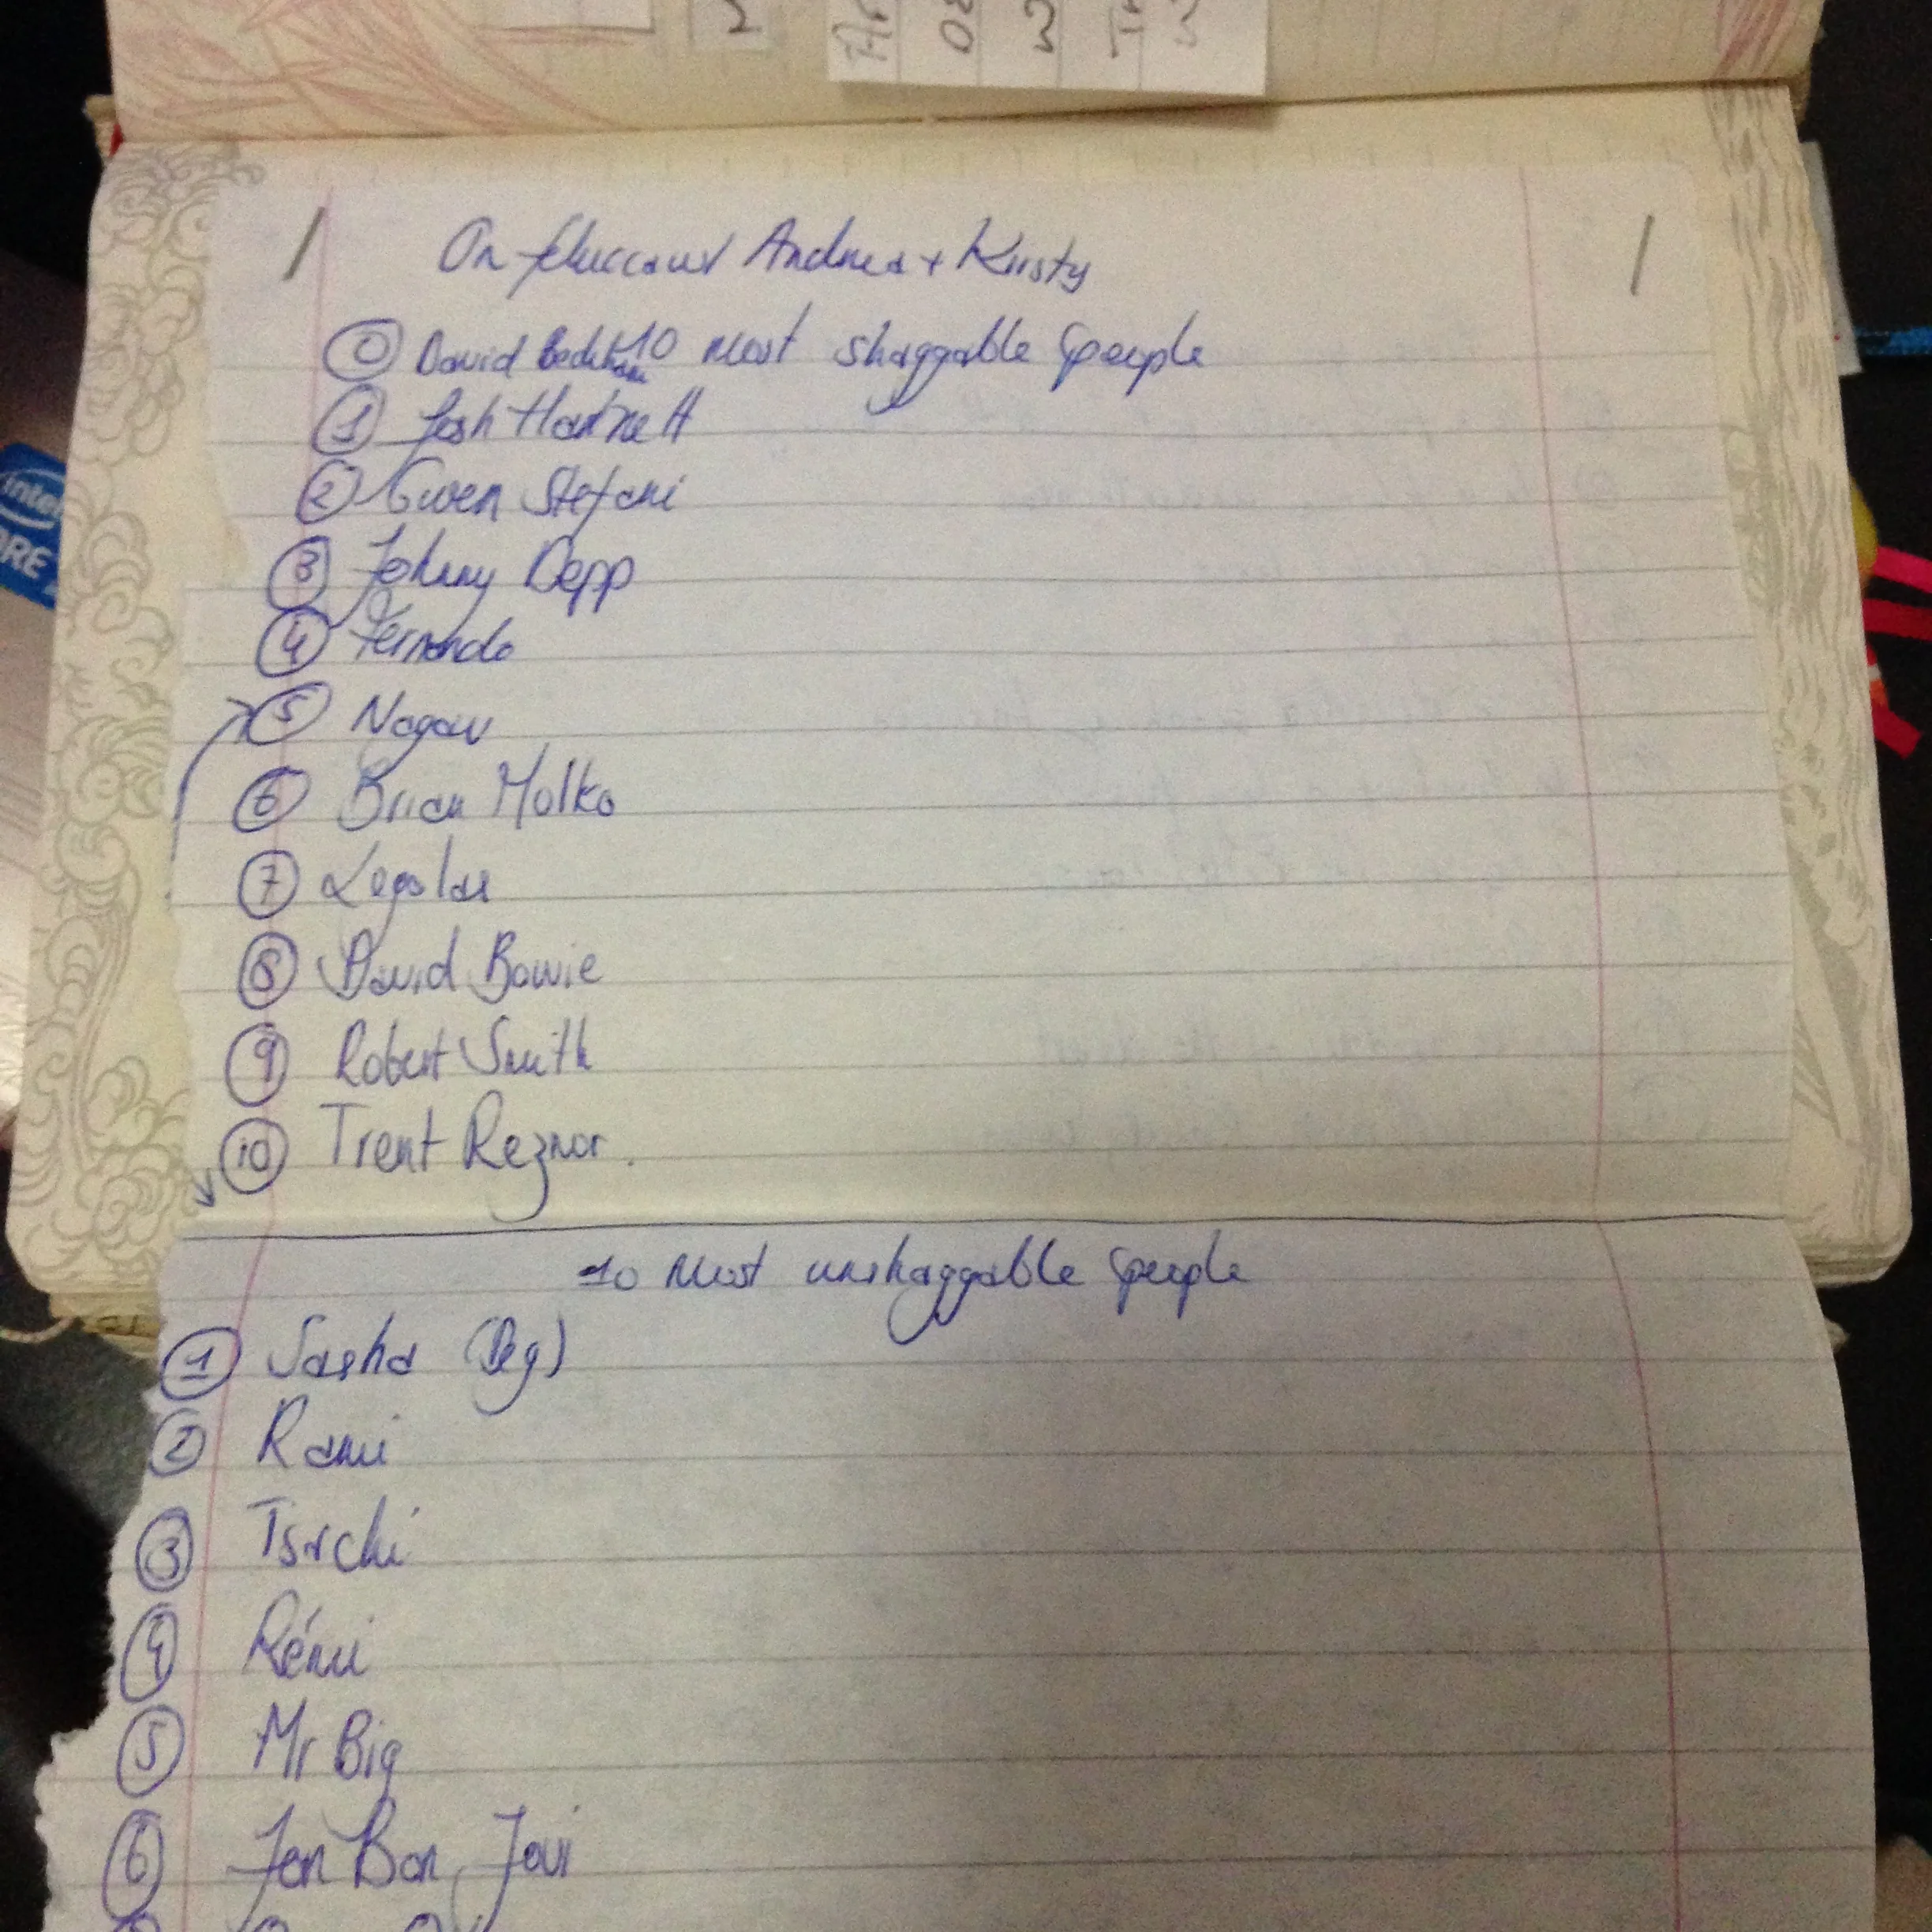 On feluccaw/ Andrea + Kirsty
⓪ David Beckham 10 Most shaggable people
① Josh Hartnett
② Gwen Stefani
③ Johnny Depp
④ Fernando
⑤
⑥ Brian Molko
⑦ Legolas
⑧ David Bowie
⑨ Robert Smith
⑩ Trent Reznor.
10 Most unshaggable people
① Sasha
② Rami
③
④ Rémi
⑤ Mr Big
⑥ Jon Bon Jovi
intel